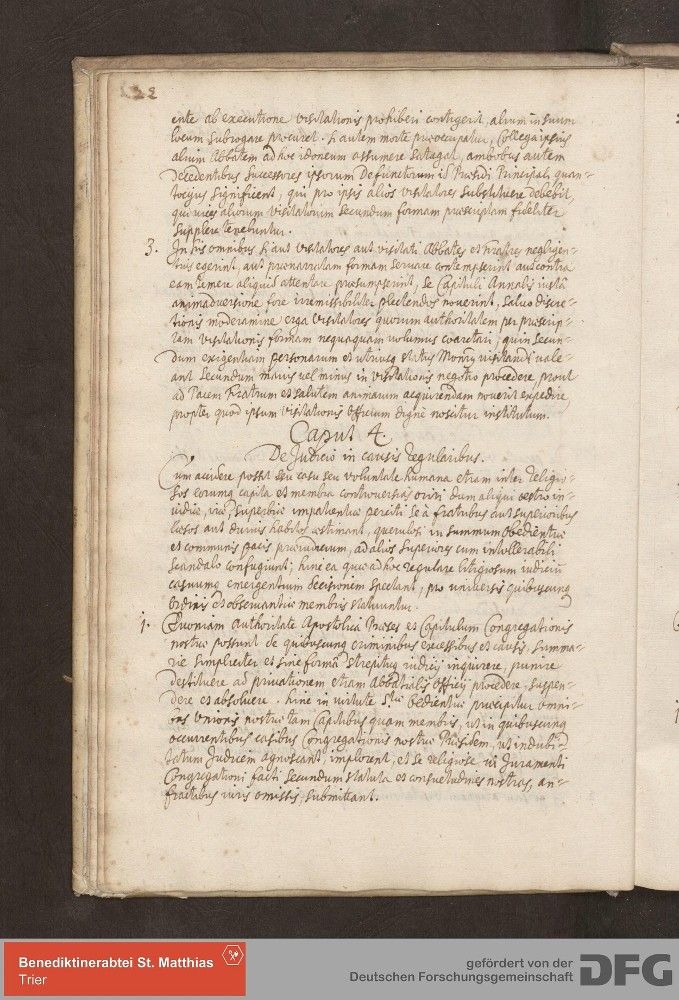 22
ente ab executione visitationis prohiberi contigerit, alium in suum
locum subrogare procuret. Si autem morte praeoccupatur, Collega ipsius
alium Abbatem ad hoc idoneum assumere satagat, ambobus autem
decedentibus successores ipsorum defunctorum id Praesidi Principali quan-
tocyus significent, qui pro ipsis alios visitatores substituere debebit,
qui vices aliorum visitatorum secundum formam praescriptam fideliter
supplere tenebuntur.
3. In his omnibus si aut visitatores aut visitati Abbates et Fratres negligen-
tius egerint, aut praenarratam formam servare contempserint aut contra
eam temere aliquid attentare praesumpserint, se Capituli Annalis iusta
animadversione fore irremissibiliter plectendos noverint, salvo discre-
tionis moderamine erga visitatores quorum authoritatem per praescrip-
tam visitationis formam nequaquam volumus coarctari, quin secun-
dum exigentiam personarum et utriusq status Monrÿ visitandi vale-
ant secundum maius vel minus in visitationis negotio procedere, prout
ad Pacem Fratrum et salutem animarum acquirendam noverit expedire
propter quod ipsum visitationis officium digne noscitur institutum.
Caput 4.
De Judicio in causis regularibus.
Cum accidere possit seu casu seu voluntate humana etiam inter religio-
sos eorumq capita et membra controversias oriri dum aliqui oestro in-
vidiae, irae, superbiae impatientiae perciti se à fratribus aut superioribus
laesos aut durius habitos aestimant, querulosi in summum obedientiae
et communis pacis praeiudicium, ad alios superiores cum intollerabili
scandalo confugiunt; hinc ea quae ad hoc regulare litigiosum iudicium
casuumq emergentium decisionem spectant, pro universis quibuscunq
Ordinis et observantiae membris statuuntur.
1. Quoniam authoritate Apostolica Praeses et Capitulum Congregationis
nostrae possunt de quibuscunq criminibus excessibus et causis, summa-
rie simpliciter et sine forma strepituq iudicij inquirere, punire
destituere ad privationem etiam Abbatialis officij procedere, suspen-
dere et absolvere. hinc in virtute S.tae obedientiae praecipitur omni-
bus Unionis nostrae tam Capitibus quam membris, ut in quibuscunq
occurrentibus casibus Congregationis nostrae Praesidem, ut indubi-
tatum Judicem agnoscant, implorent, et se religiose vi Juramenti
Congregationi facti secundum statuta et consuetudines nostras, an-
fractibus iuris omissis, submittant.
Benediktinerabtei St. Matthias
Trier
gefördert von der
Deutschen Forschungsgemeinschaft
DFG